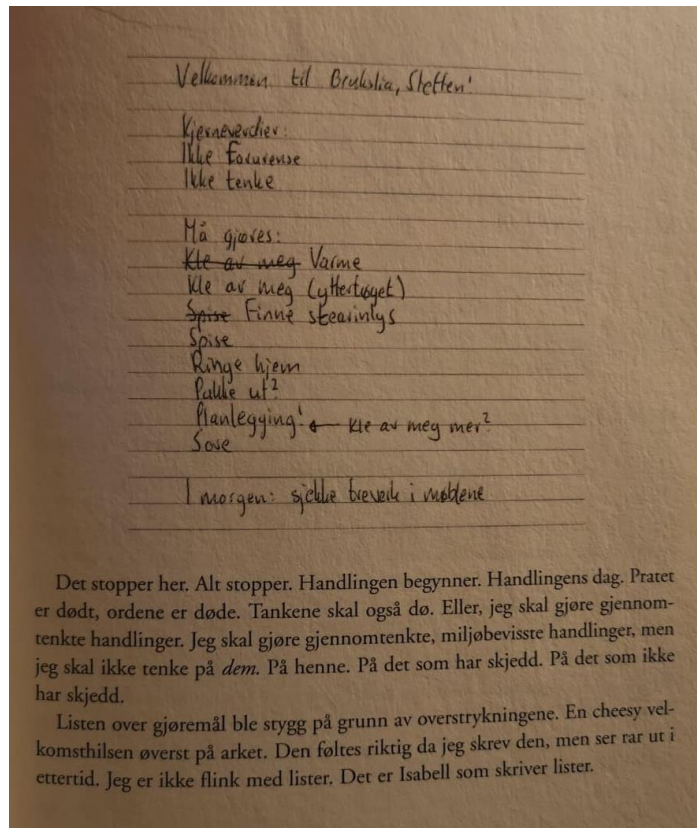 Velkommen til Brukslia, Steffen!
Kjerneverdier:
Ikke forurense
Ikke tenke
Må gjøres:
Kle av meg Varme
Kle av meg (yttertøyet)
Spise Finne stearinlys
Spise
Ringe hjem
Pakke ut?
Planlegging! ← Kle av meg mer?
Sove
I morgen: sjekke treverk i møblene
Det stopper her. Alt stopper. Handlingen begynner. Handlingens dag. Pratet
er dødt, ordene er døde. Tankene skal også dø. Eller, jeg skal gjøre gjennom-
tenkte handlinger. Jeg skal gjøre gjennomtenkte, miljøbevisste handlinger, men
jeg skal ikke tenke på dem. På henne. På det som har skjedd. På det som ikke
har skjedd.
Listen over gjøremål ble stygg på grunn av overstrykningene. En cheesy vel-
komsthilsen øverst på arket. Den føltes riktig da jeg skrev den, men ser rar ut i
ettertid. Jeg er ikke flink med lister. Det er Isabell som skriver lister.